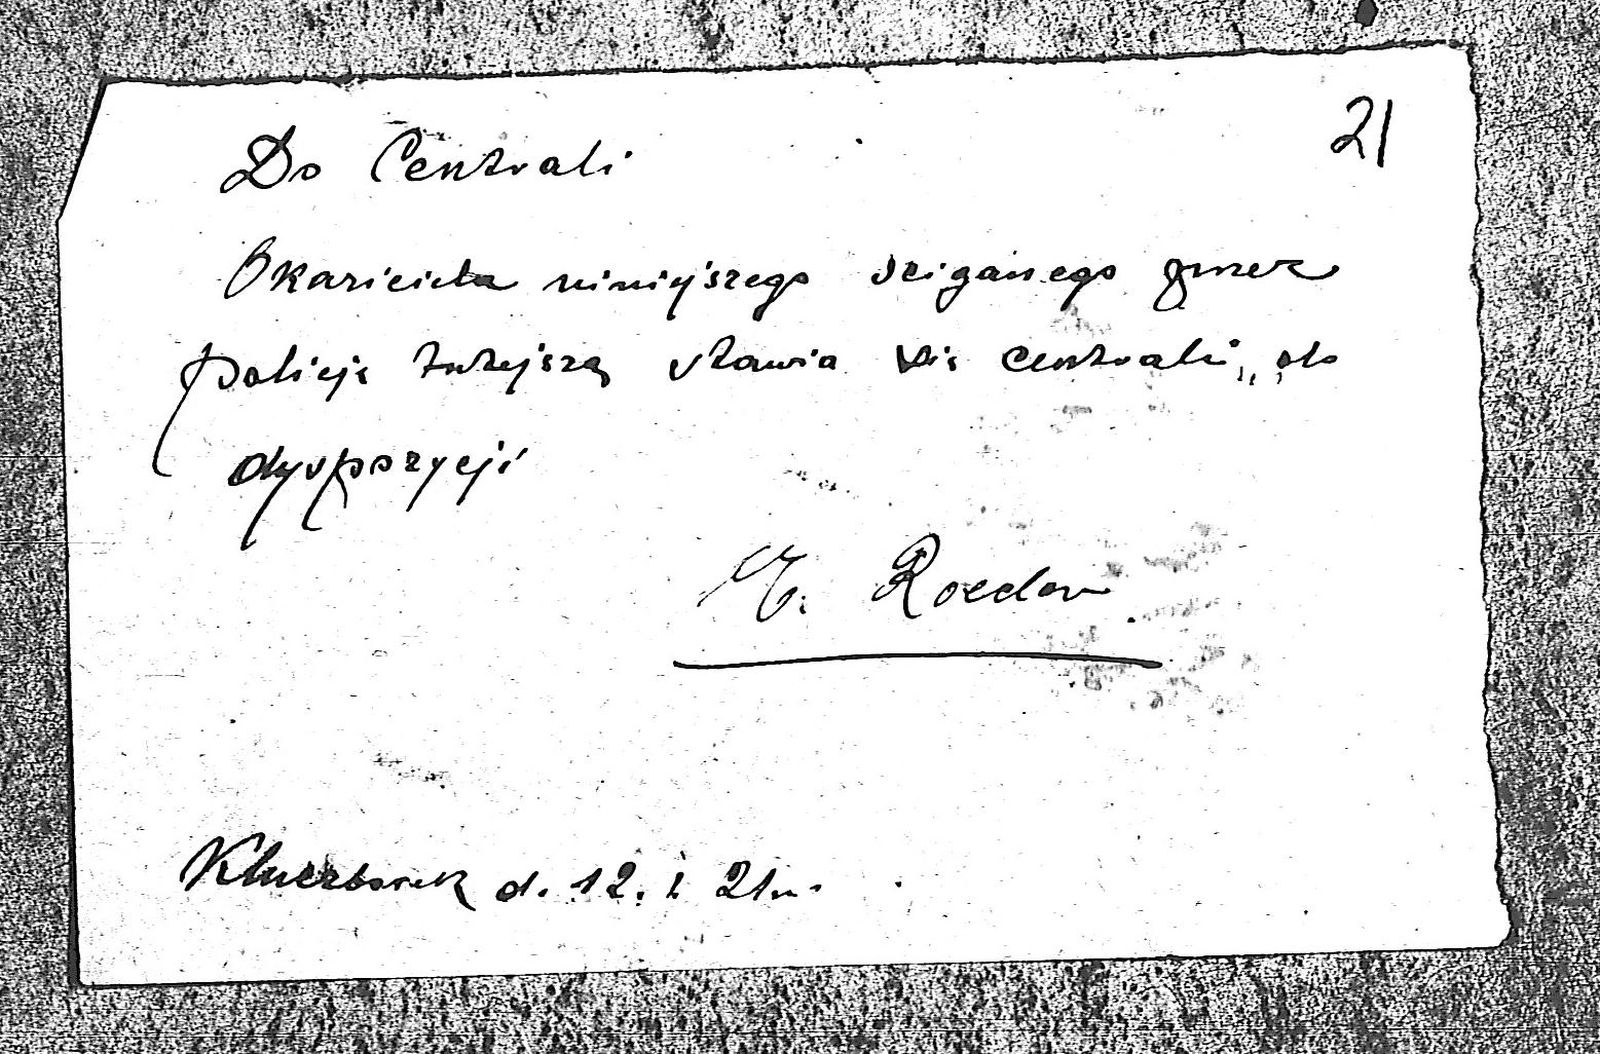 21
Do Centrali
Okaziciela niniejszego ściganego przez
policję tutejszą stawia się centrali „do
dyspozycji
Kluczborek d. 12. I 21 r.